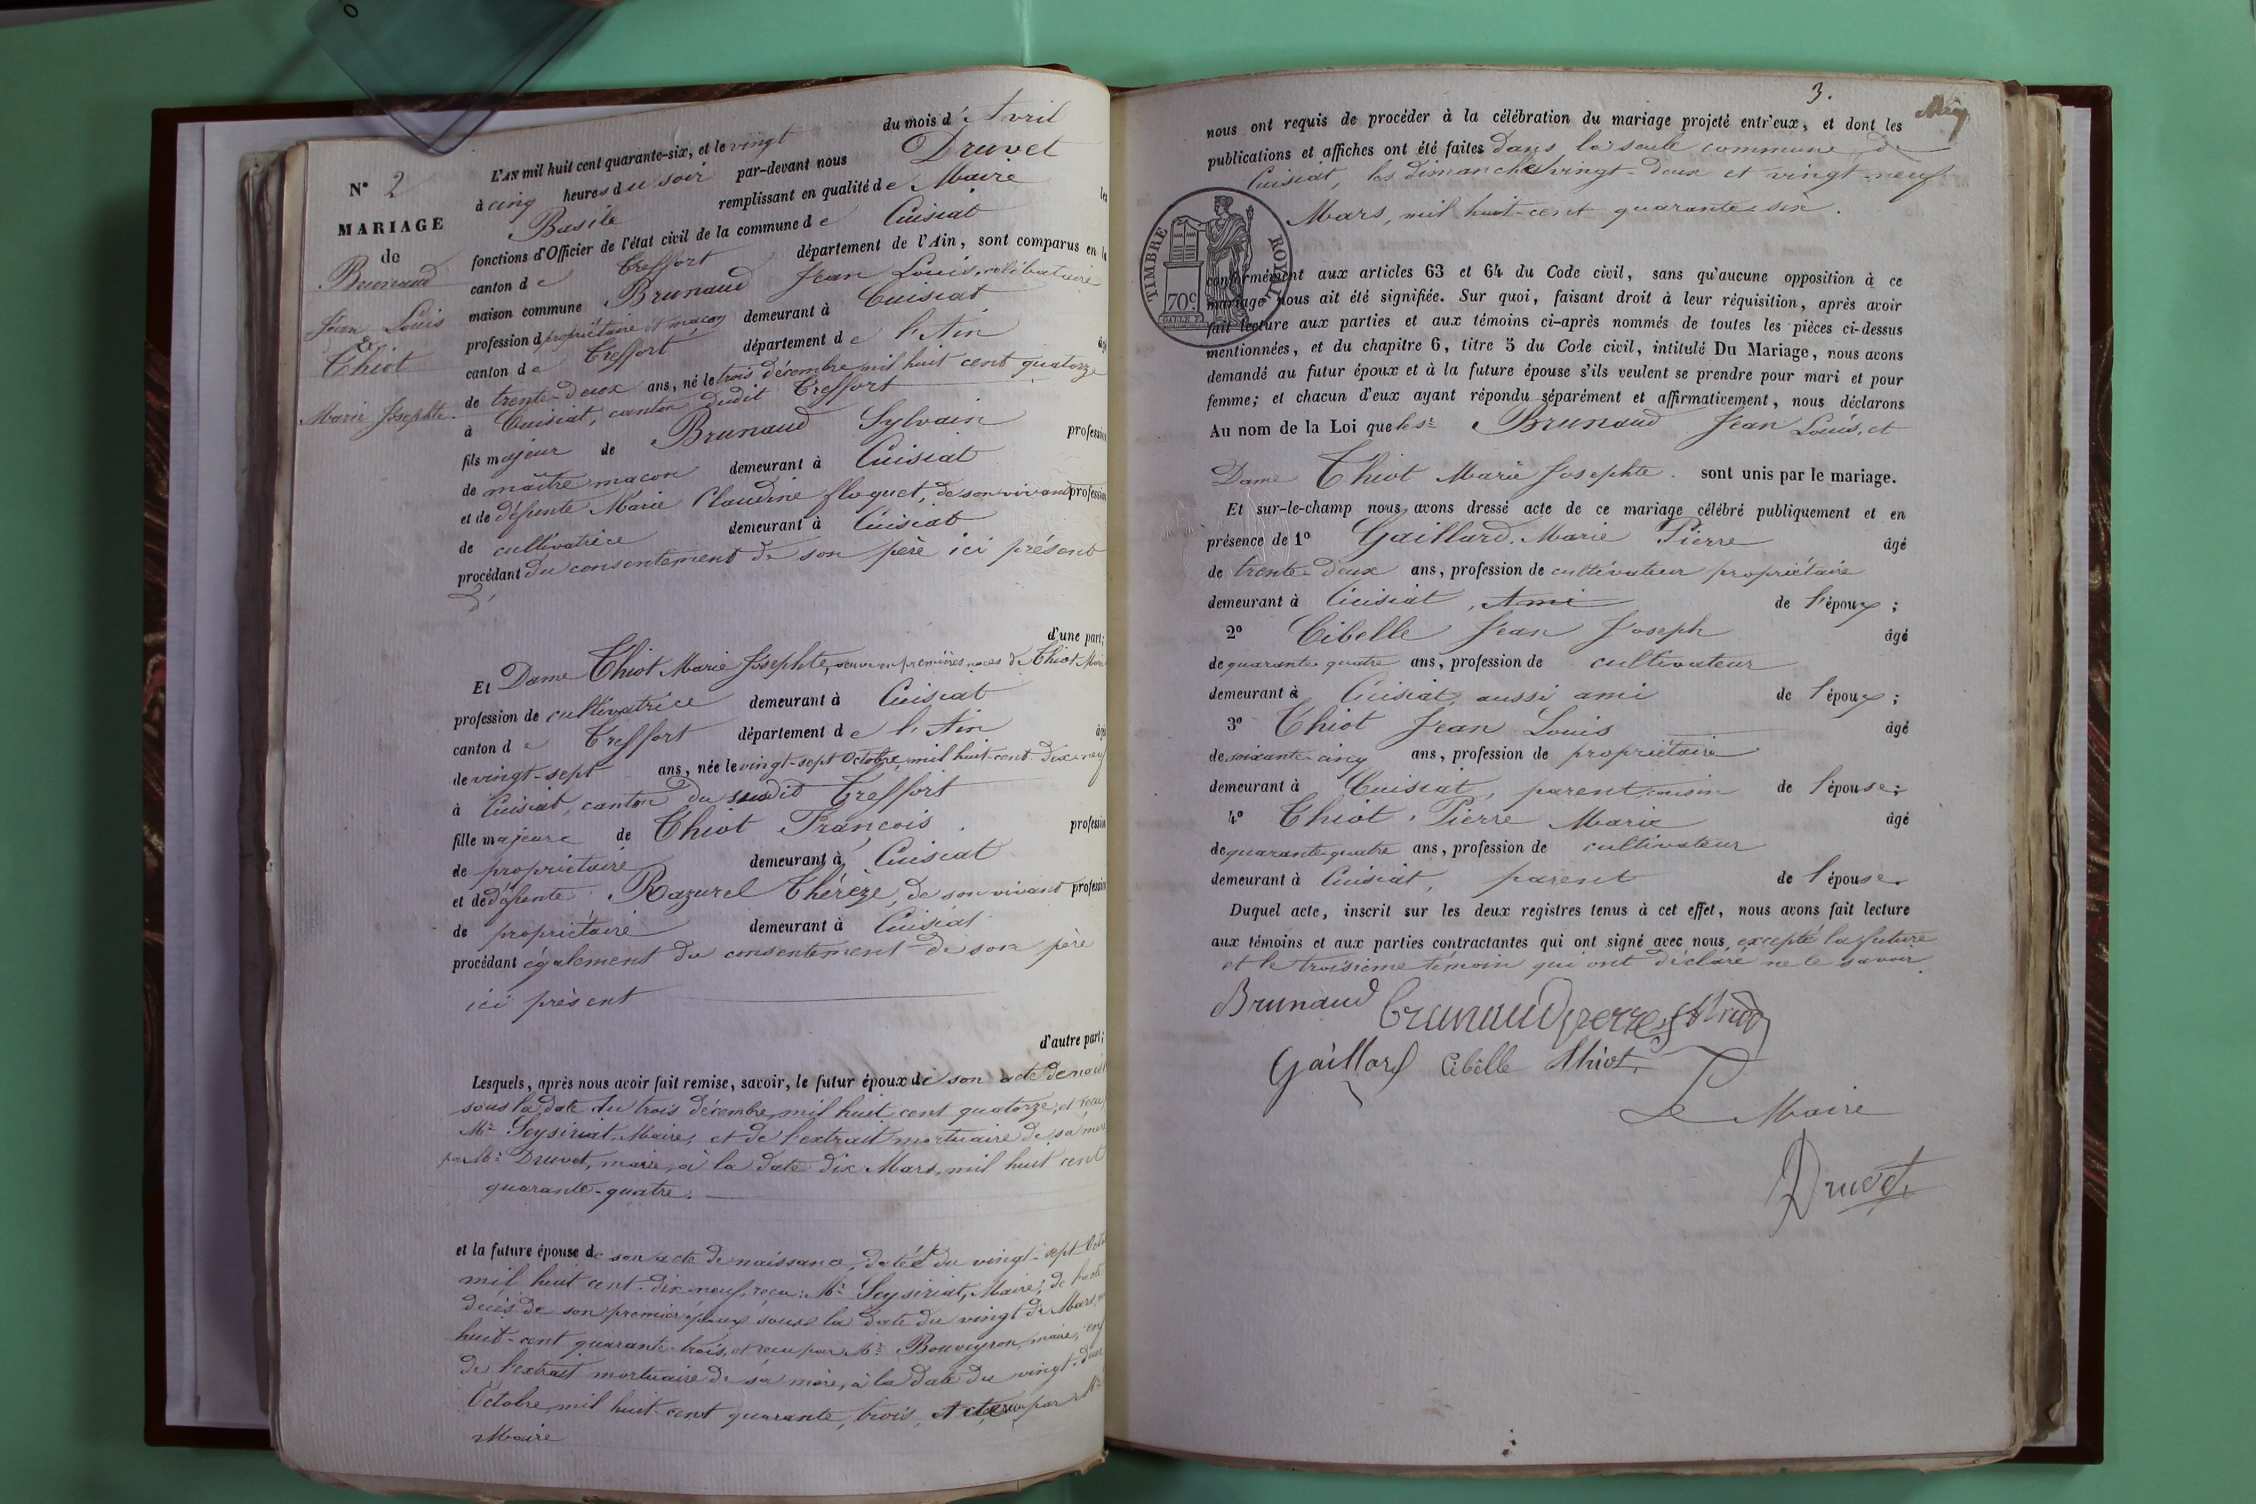 N° 2
MARIAGE
de
Brunaud
Jean Louis
&
Thiot
Marie Josephte.
L'AN mil huit cent quarante-six, et le vingt du mois d'Avril
à cinq heures du soir par-devant nous Druvet
Basile remplissant en qualité de Maire les
fonctions d'Officier de l'état civil de la commune de Cuisiat
canton de Treffort département de l'Ain, sont comparus en la
maison commune Brunaud Jean Louis, célibataire
profession d propriétaire et maçon demeurant à Cuisiat
canton de Treffort département de l'Ain âgé
de trente-deux ans, né le trois décembre mil huit cent quatorze
à Cuisiat, canton dudit Treffort
fils majeur de Brunaud Sylvain profession
de maître maçon demeurant à Cuisiat
et de défunte Marie Claudine floquet, de son vivant profession
de cultivatrice demeurant à Cuisiat
procédant du consentement de son père ici présent
d'une part;
Et Dame Thiot Marie Josephte, veuve en premières noces de Thiot
profession de cultivatrice demeurant à Cuisiat
canton de Treffort département de l'Ain âgée
de vingt-sept ans, née le vingt-sept Octobre, mil huit-cent-dix-neuf
à Cuisiat, canton du susdit Treffort
fille majeure de Thiot François profession
de propriétaire demeurant à Cuisiat
et de défunte Razurel Thérèze, de son vivant profession
de propriétaire demeurant à Cuisiat
procédant également du consentement de son père
ici présent
d'autre part;
Lesquels, après nous avoir fait remise, savoir, le futur époux de son acte de
sous la date du trois décembre, mil huit cent quatorze, et reçu
Mr Leysiriat, Maire, et de l'extrait mortuaire de sa mère
par Mr Druvet, maire, à la date dix Mars, mil huit cent
quarante-quatre.
et la future épouse de son acte de naissance, daté du vingt-sept
mil huit cent-dix-neuf, reçu Mr Leysiriat, Maire, de
décès de son premier époux sous la date du vingt de Mars,
huit-cent quarante-trois, et reçu par Mr Bouveyron, maire,
de l'extrait mortuaire de sa mère, à la date du vingt-deux
Octobre mil huit-cent quarante-trois, par Mr
Maire
3.
nous ont requis de procéder à la célébration du mariage projeté entr'eux, et dont les
publications et affiches ont été faites dans la seule commune de
Cuisiat, les dimanches vingt-deux et vingt-neuf
Mars, mil huit-cent quarante-six.
TIMBRE ROYAL
70c
conformément aux articles 63 et 64 du Code civil, sans qu'aucune opposition à ce
mariage nous ait été signifiée. Sur quoi, faisant droit à leur réquisition, après avoir
fait lecture aux parties et aux témoins ci-après nommés de toutes les pièces ci-dessus
mentionnées, et du chapitre 6, titre 5 du Code civil, intitulé Du Mariage, nous avons
demandé au futur époux et à la future épouse s'ils veulent se prendre pour mari et pour
femme; et chacun d'eux ayant répondu séparément et affirmativement, nous déclarons
Au nom de la Loi que le sr Brunaud Jean Louis, et
Dame Thiot Marie Josephte. sont unis par le mariage.
Et sur-le-champ nous avons dressé acte de ce mariage célébré publiquement et en
présence de 1° Gaillard. Marie Pierre âgé
de trente-deux ans, profession de cultivateur propriétaire
demeurant à Cuisiat, Ami de l'époux;
2° Cibelle Jean Joseph âgé
de quarante-quatre ans, profession de cultivateur
demeurant à Cuisiat, aussi ami de l'époux;
3° Thiot Jean Louis âgé
de soixante-cinq ans, profession de propriétaire
demeurant à Cuisiat, parent, cousin de l'épouse;
4° Thiot, Pierre Marie âgé
de quarante-quatre ans, profession de cultivateur
demeurant à Cuisiat, parent de l'épouse.
Duquel acte, inscrit sur les deux registres tenus à cet effet, nous avons fait lecture
aux témoins et aux parties contractantes qui ont signé avec nous, excepté la future
et le troisième témoin qui ont déclaré ne le savoir.
Brunaud Brunaud
Gaillard Cibelle Thiot
Le Maire
Druvet